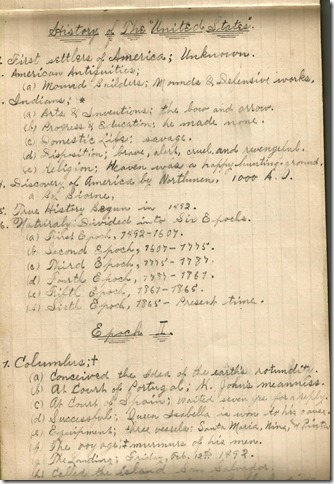 History of The "United States".
1. First settlers of America; Unknown.
2. American Antiquities;
(a) Mound Builders; Mounds & Defensive works.
3. Indians; *
(a) Arts & Inventions; the bow and arrow.
(b) Progress & Education; he made none.
(c) Domestic Life; savage.
(d) Disposition; brave, alert, cruel, and revengeful.
(e) religion; Heaven was a happy hunting-ground.
4. Discovery of America by Northmen, 1000 A. D.
a
5. True History begun in 1492.
6. Naturaly Divided into Six Epochs.
(a) First Epoch, 1492-1607.
(b) Second Epoch, 1607-1775.
(c) Third Epoch, 1775-1787.
(d) Fourth Epoch, 1787-1861.
(e) Fifth Epoch, 1861-1865.
Sixth Epoch, 1865- Present time.
Epoch I.
1. Columbus;†
(a) Conceived the Idea of the earth's rotundity.
(b) At Court of Portugal; K. John's meanness.
(c) At Court of Spain; waited seven yrs for a reply.
(d) Successful; Queen Isabella is won to his cause.
(e) Equipment; Three vessels: Santa Maria, Nina, & Pinta.
The voyage; murmurs of his men.
The Landing; Friday, Oct. 1492.
Called the island San Salvador